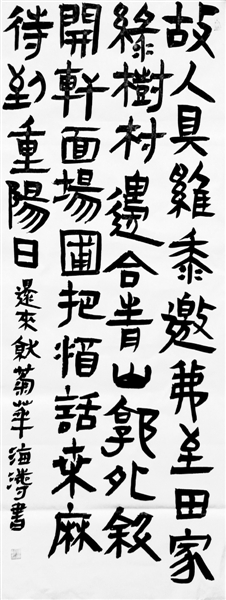 故人具雞黍邀我至田家
綠樹村邊合青山郭外斜
開軒面場圃把酒話桑麻
待到重陽日還來就菊華海濤書